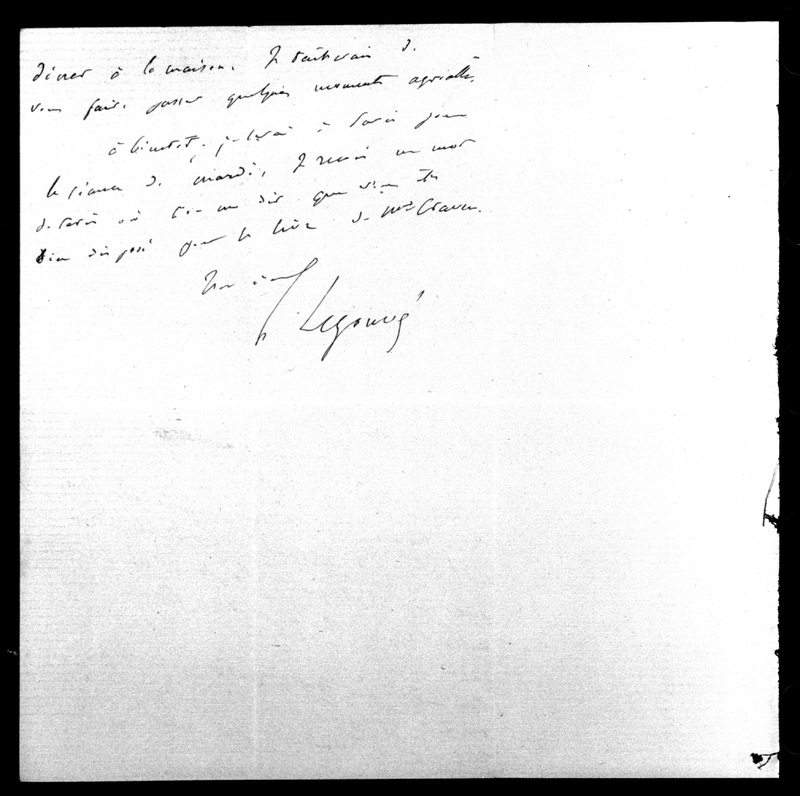 dîner à la maison. Je tâcherai de
vous faire passer quelques moments agréables.
à bientôt. je serai à Paris pour
la séance de mardi, Je reçois un mot
de Paris où l'on me dit que l'on est
bien disposé pour le livre de Mme Craven.
Tout à vous
E. Legouvé